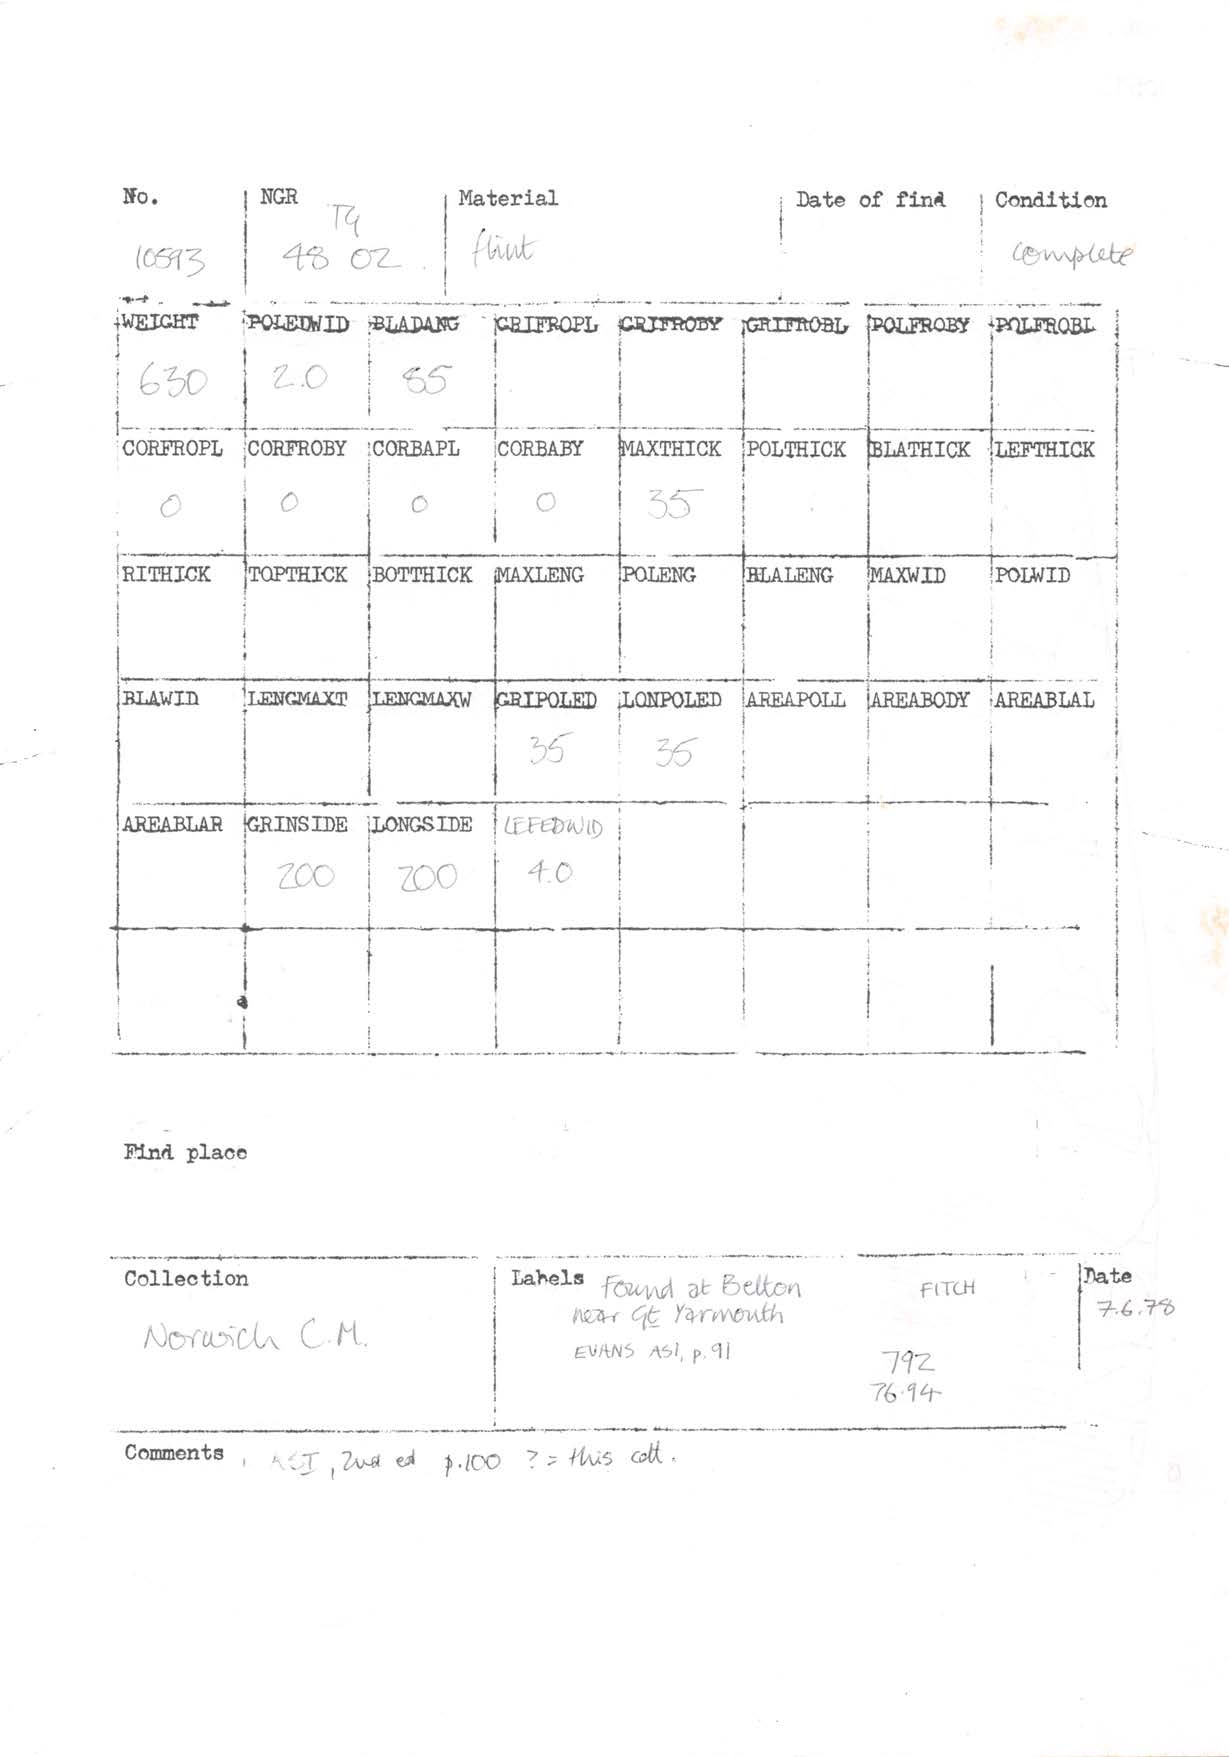 No. NGR Material Date of find Condition
TG
10593 48 02 flint complete
WEIGHT POLEDWID BLADANG GRIFROPL GRIFROBY GRIFROBL POLFROBY POLFROBL
630 2.0 85
CORFROPL CORFROBY CORBAPL CORBABY MAXTHICK POLTHICK BLATHICK LEFTHICK
0 0 0 0 35
RITHICK TOPTHICK BOTTHICK MAXLENG POLENG BLALENG MAXWID POLWID
BLAWID LENGMAXT LENGMAXW GRIPOLED LONPOLED AREAPOLL AREABODY AREABLAL
35 35
AREABLAR GRINSIDE LONGSIDE LEFEDWID
200 200 4.0
Find place
Collection Labels Found at Belton FITCH Date
near Gt Yarmouth 7.6.78
Norwich C.M. EVANS ASI, p.91 792
76.94
Comments ASI, 2nd ed p.100 ? = this coll.